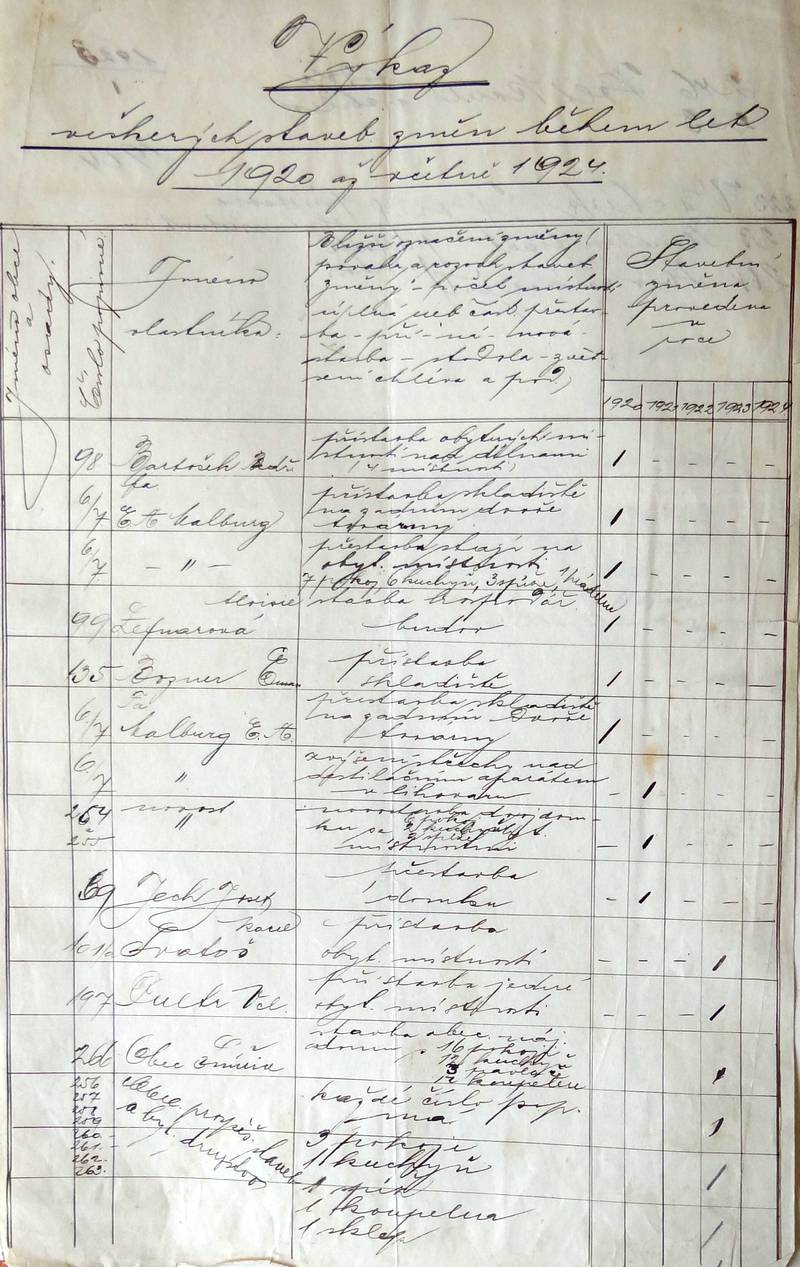 Výkaz
veškerých staveb. změn během let
1920 až včetně 1924.
Jméno obce
a
osady.
Číslo popisné.
Jméno
vlastníka:
Bližší označení změny (
povaha a rozsah staveb.
změny - počet místností
úplná neb část. přestav-
ba - pří - ná - nová
stavba - stodola - zvět-
šení chléva a pod.)
Stavební
změna
provedena
v
roce
1920 1921 1922 1923 1924
98 Bartošek
přístavba obytných mí-
stností nad dílnami
(4 místnosti) 1 - - - -
6/7 Fa
E. A. Malburg
přístavba skladiště
na zadním dvoře
továrny 1 - - - -
6/7 - " -
přestavba stájí na
obyt. místnosti
7 pokoj, 6 kuchyní, 3 spíže, 1 1 - - - -
99 Lefnarová
stavba hospodář.
budov 1 - - - -
135 Bozner
přístavba
skladiště 1 - - - -
6/7 Fa
Malburg E. A.
přestavba skladiště
na zadním dvoře
továrny 1 - - - -
6/7 "
zvýšení střechy nad
destilačním aparátem
v lihovaru - 1 - - -
254
255 "
novostavba dvojdom-
ku se
místnostmi - 1 - - -
69 Jech Josef
přestavba
domku - 1 - - -
Karel
Svatoš
přístavba
obyt. místností - - - 1
197
přístavba jedné
obyt. místnosti - - - 1
266 Obec
stavba obec. náj.
domu s 16 pokoji
12 kuchyň
12 koupelen 1
256
257
258
259
260.
261.
262.
263.
Obec. prospěš. staveb
a byt. družstvo
každé číslo pop.
má
3 pokoje
1 kuchyň
1 spíž
1 koupelna
1 sklep